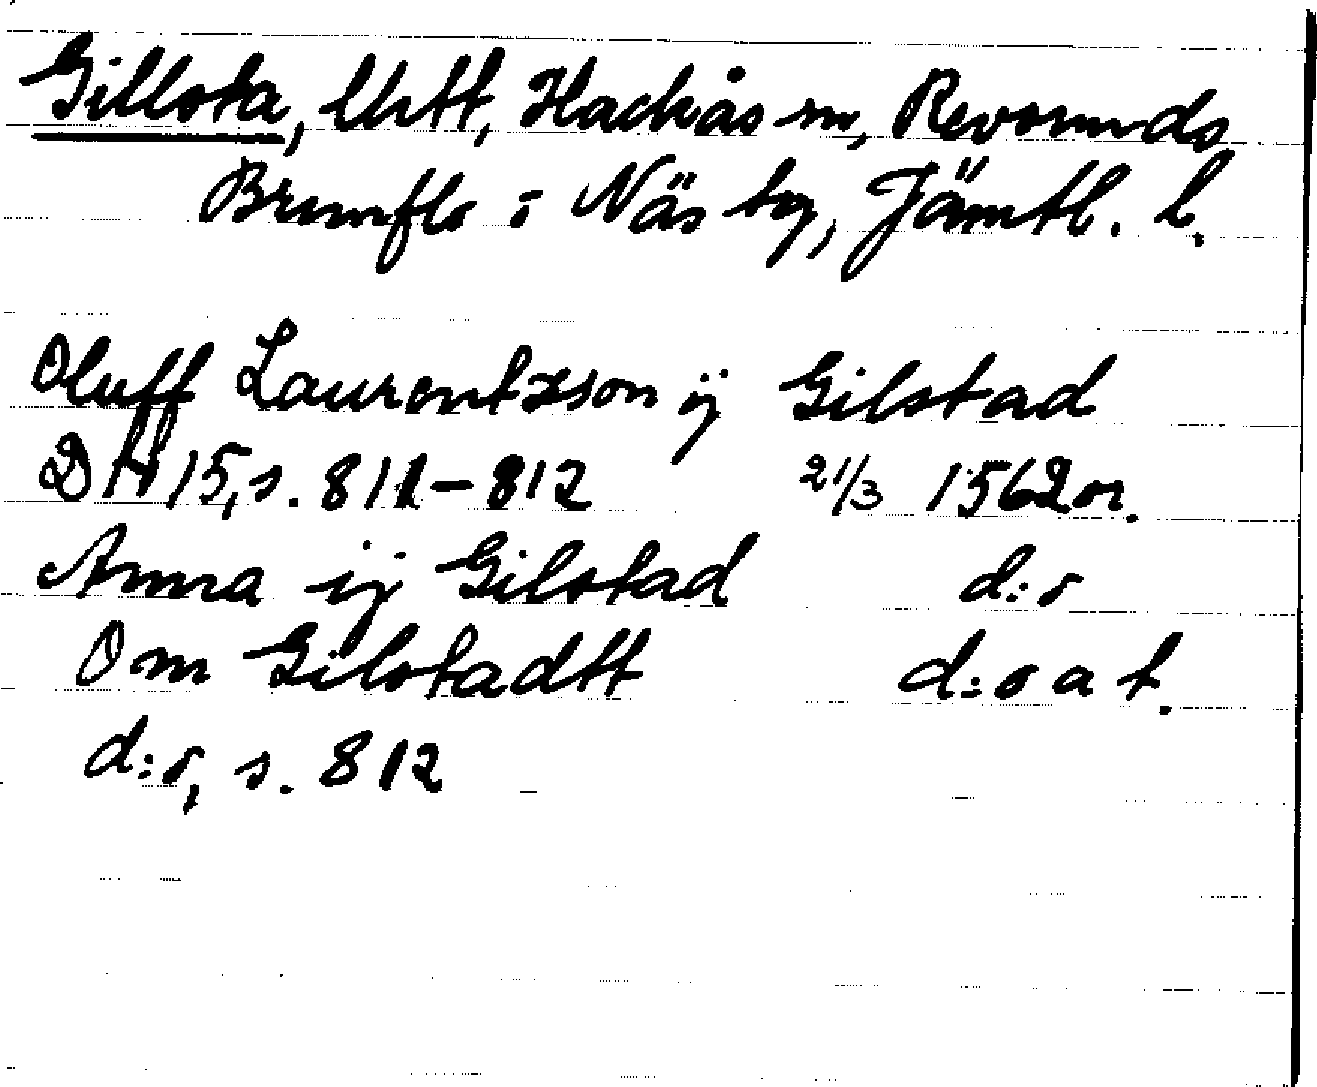 Gillsta, Utt, Hackås sn, Revsunds
Brunflo o Näs tg, Jämtl. l.
Oluff Laurentzson ÿ Gilstad
DN 15, s. 811-812 21/3 1562 or.
Anna ij Gilstad d:o
Om Gilstadtt d:o a t.
d:o, s. 812